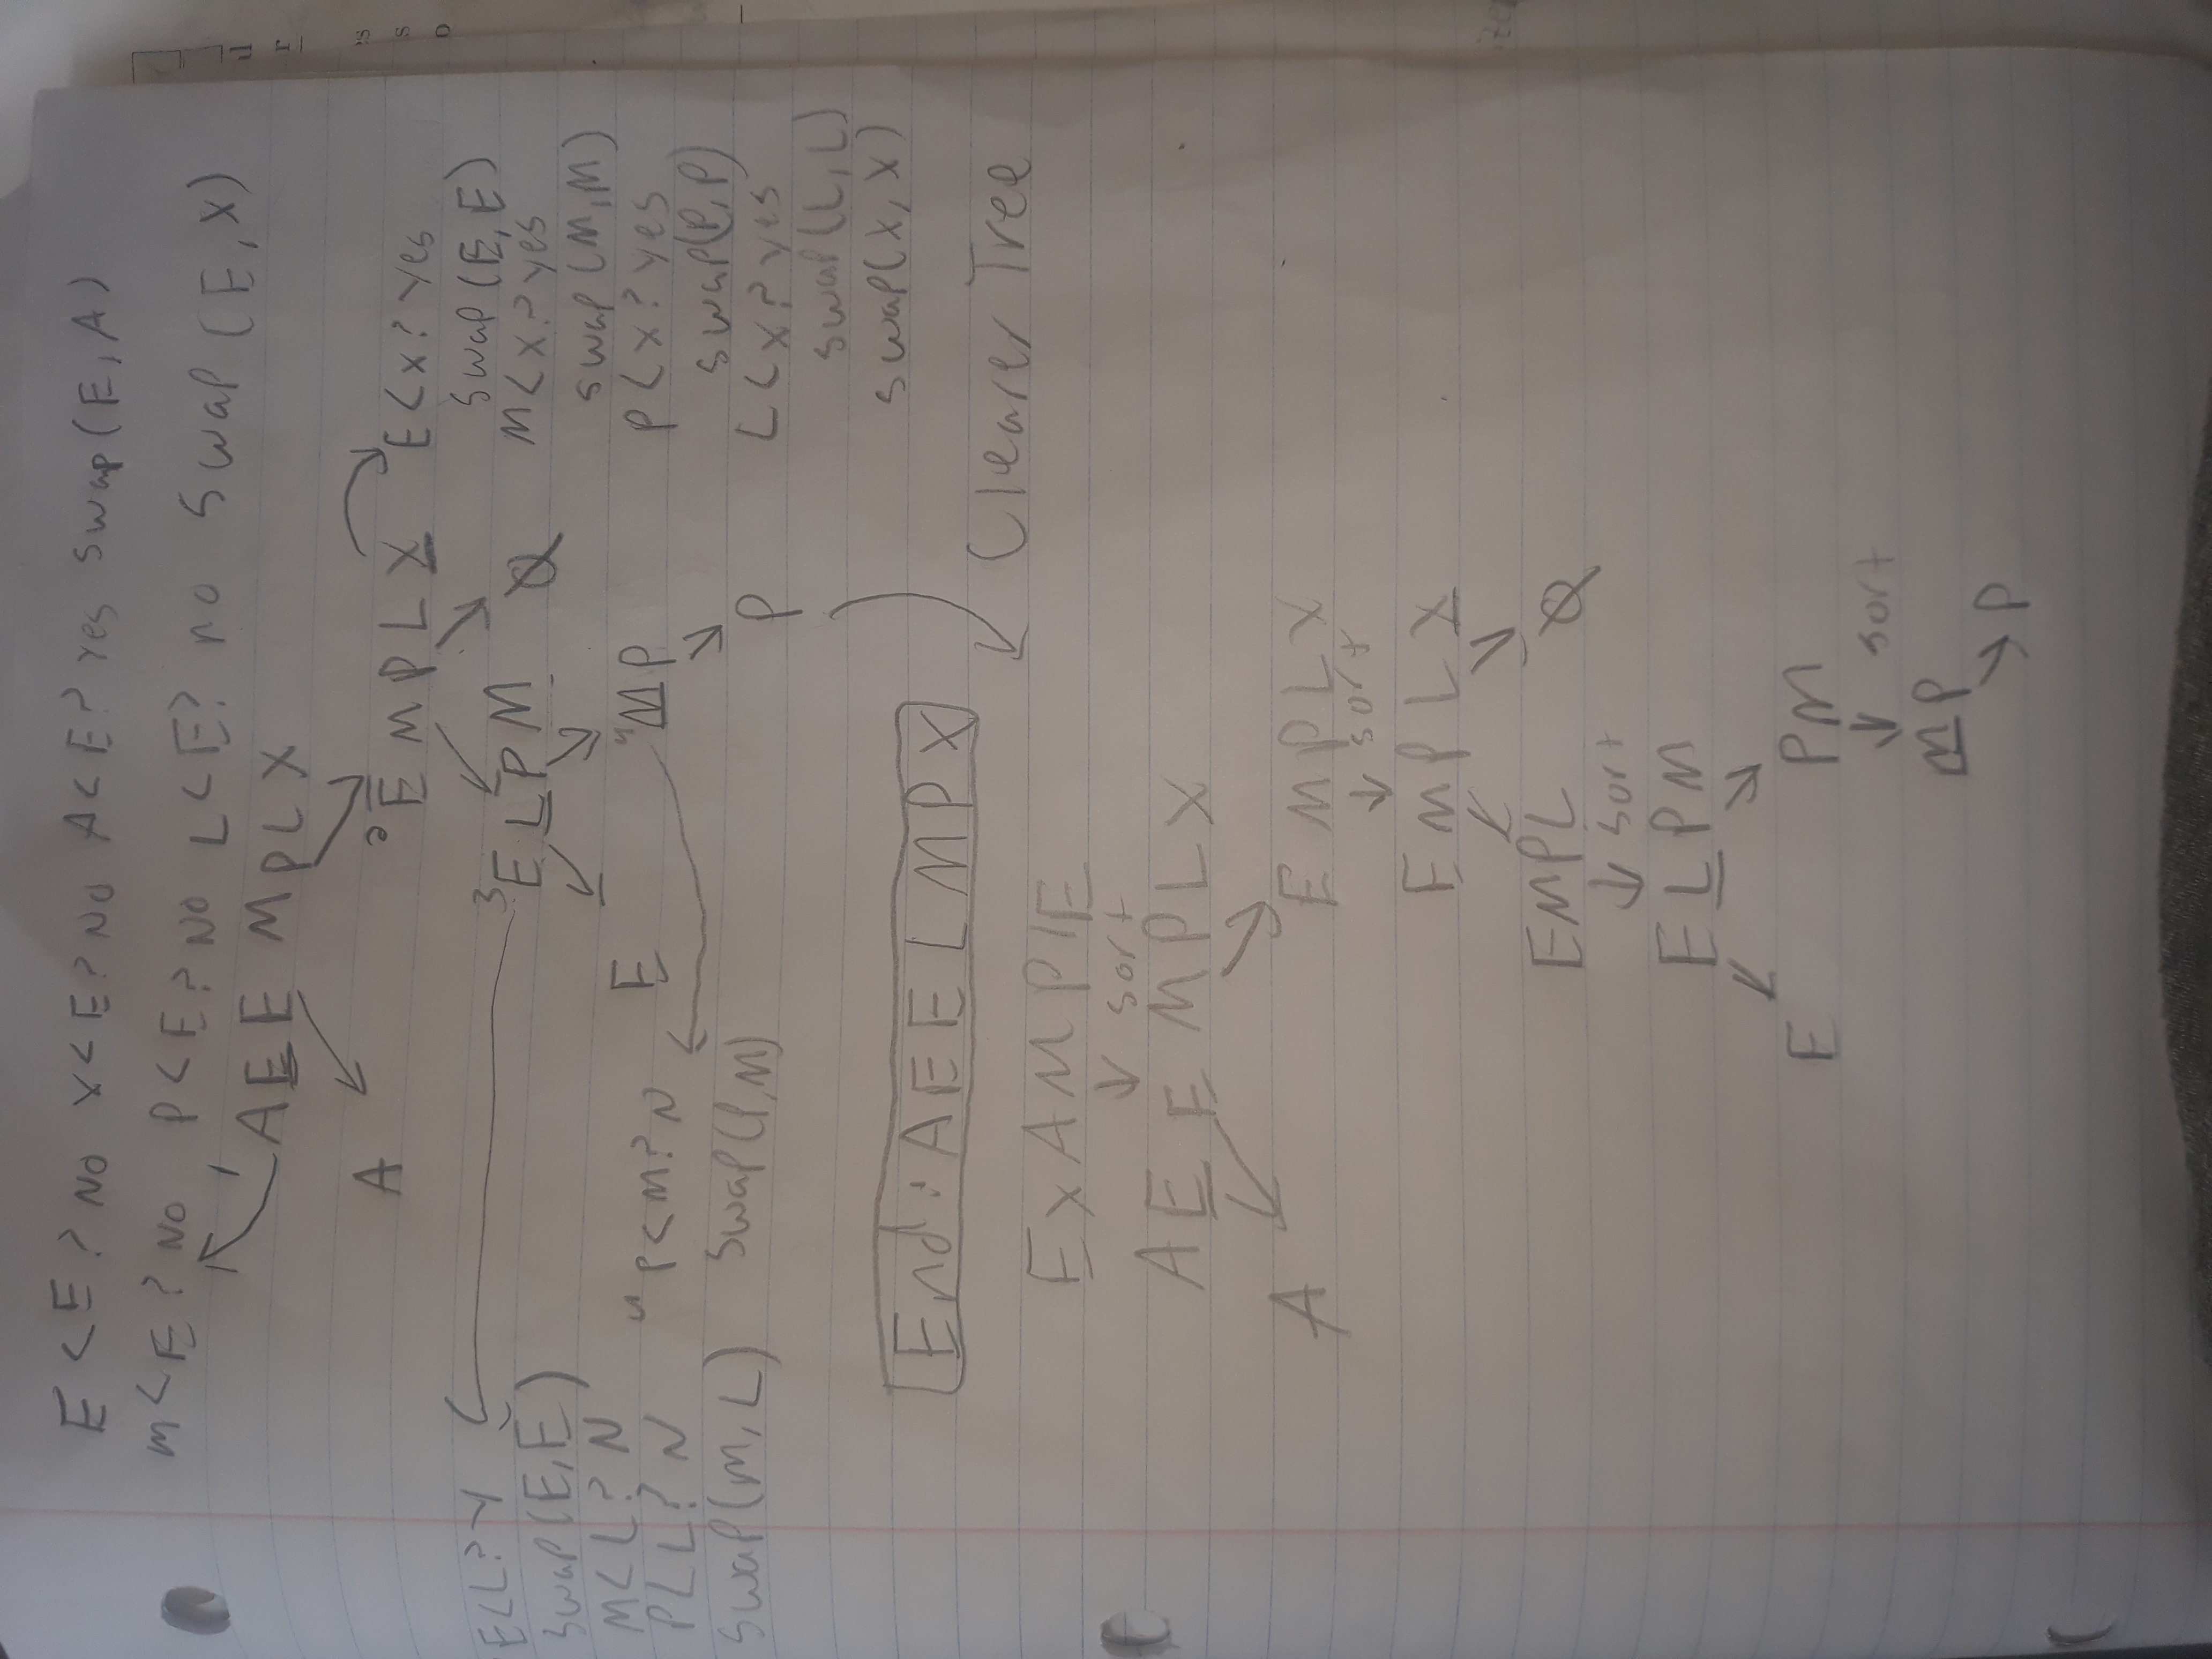 E < E ? No X < E ? No A < E ? Yes swap ( E , A )
M < E ? No , P < E ? No L < E ? no Swap ( E , X )
1 A E E M P L X
A
2 E M P L X
E < X ? Yes
swap ( E , E )
M < X ? yes
swap ( M , M )
P < X ? yes
swap ( P , P )
L < X ? yes
swap ( L , L )
swap ( X , X )
3 E L P M Ø
E < L ? Y
swap ( E , E )
M < L ? N
P < L ? N
swap ( M , L )
E 4 M P
4 P < M ? N
swap ( P , M )
P
End : A E E L M P X
Clearer Tree
E X A M P l E
sort
A E E M P L X
A E M P L X
sort
E M P L X
E M P L Ø
sort
E L P M
E P M
sort
M P
P